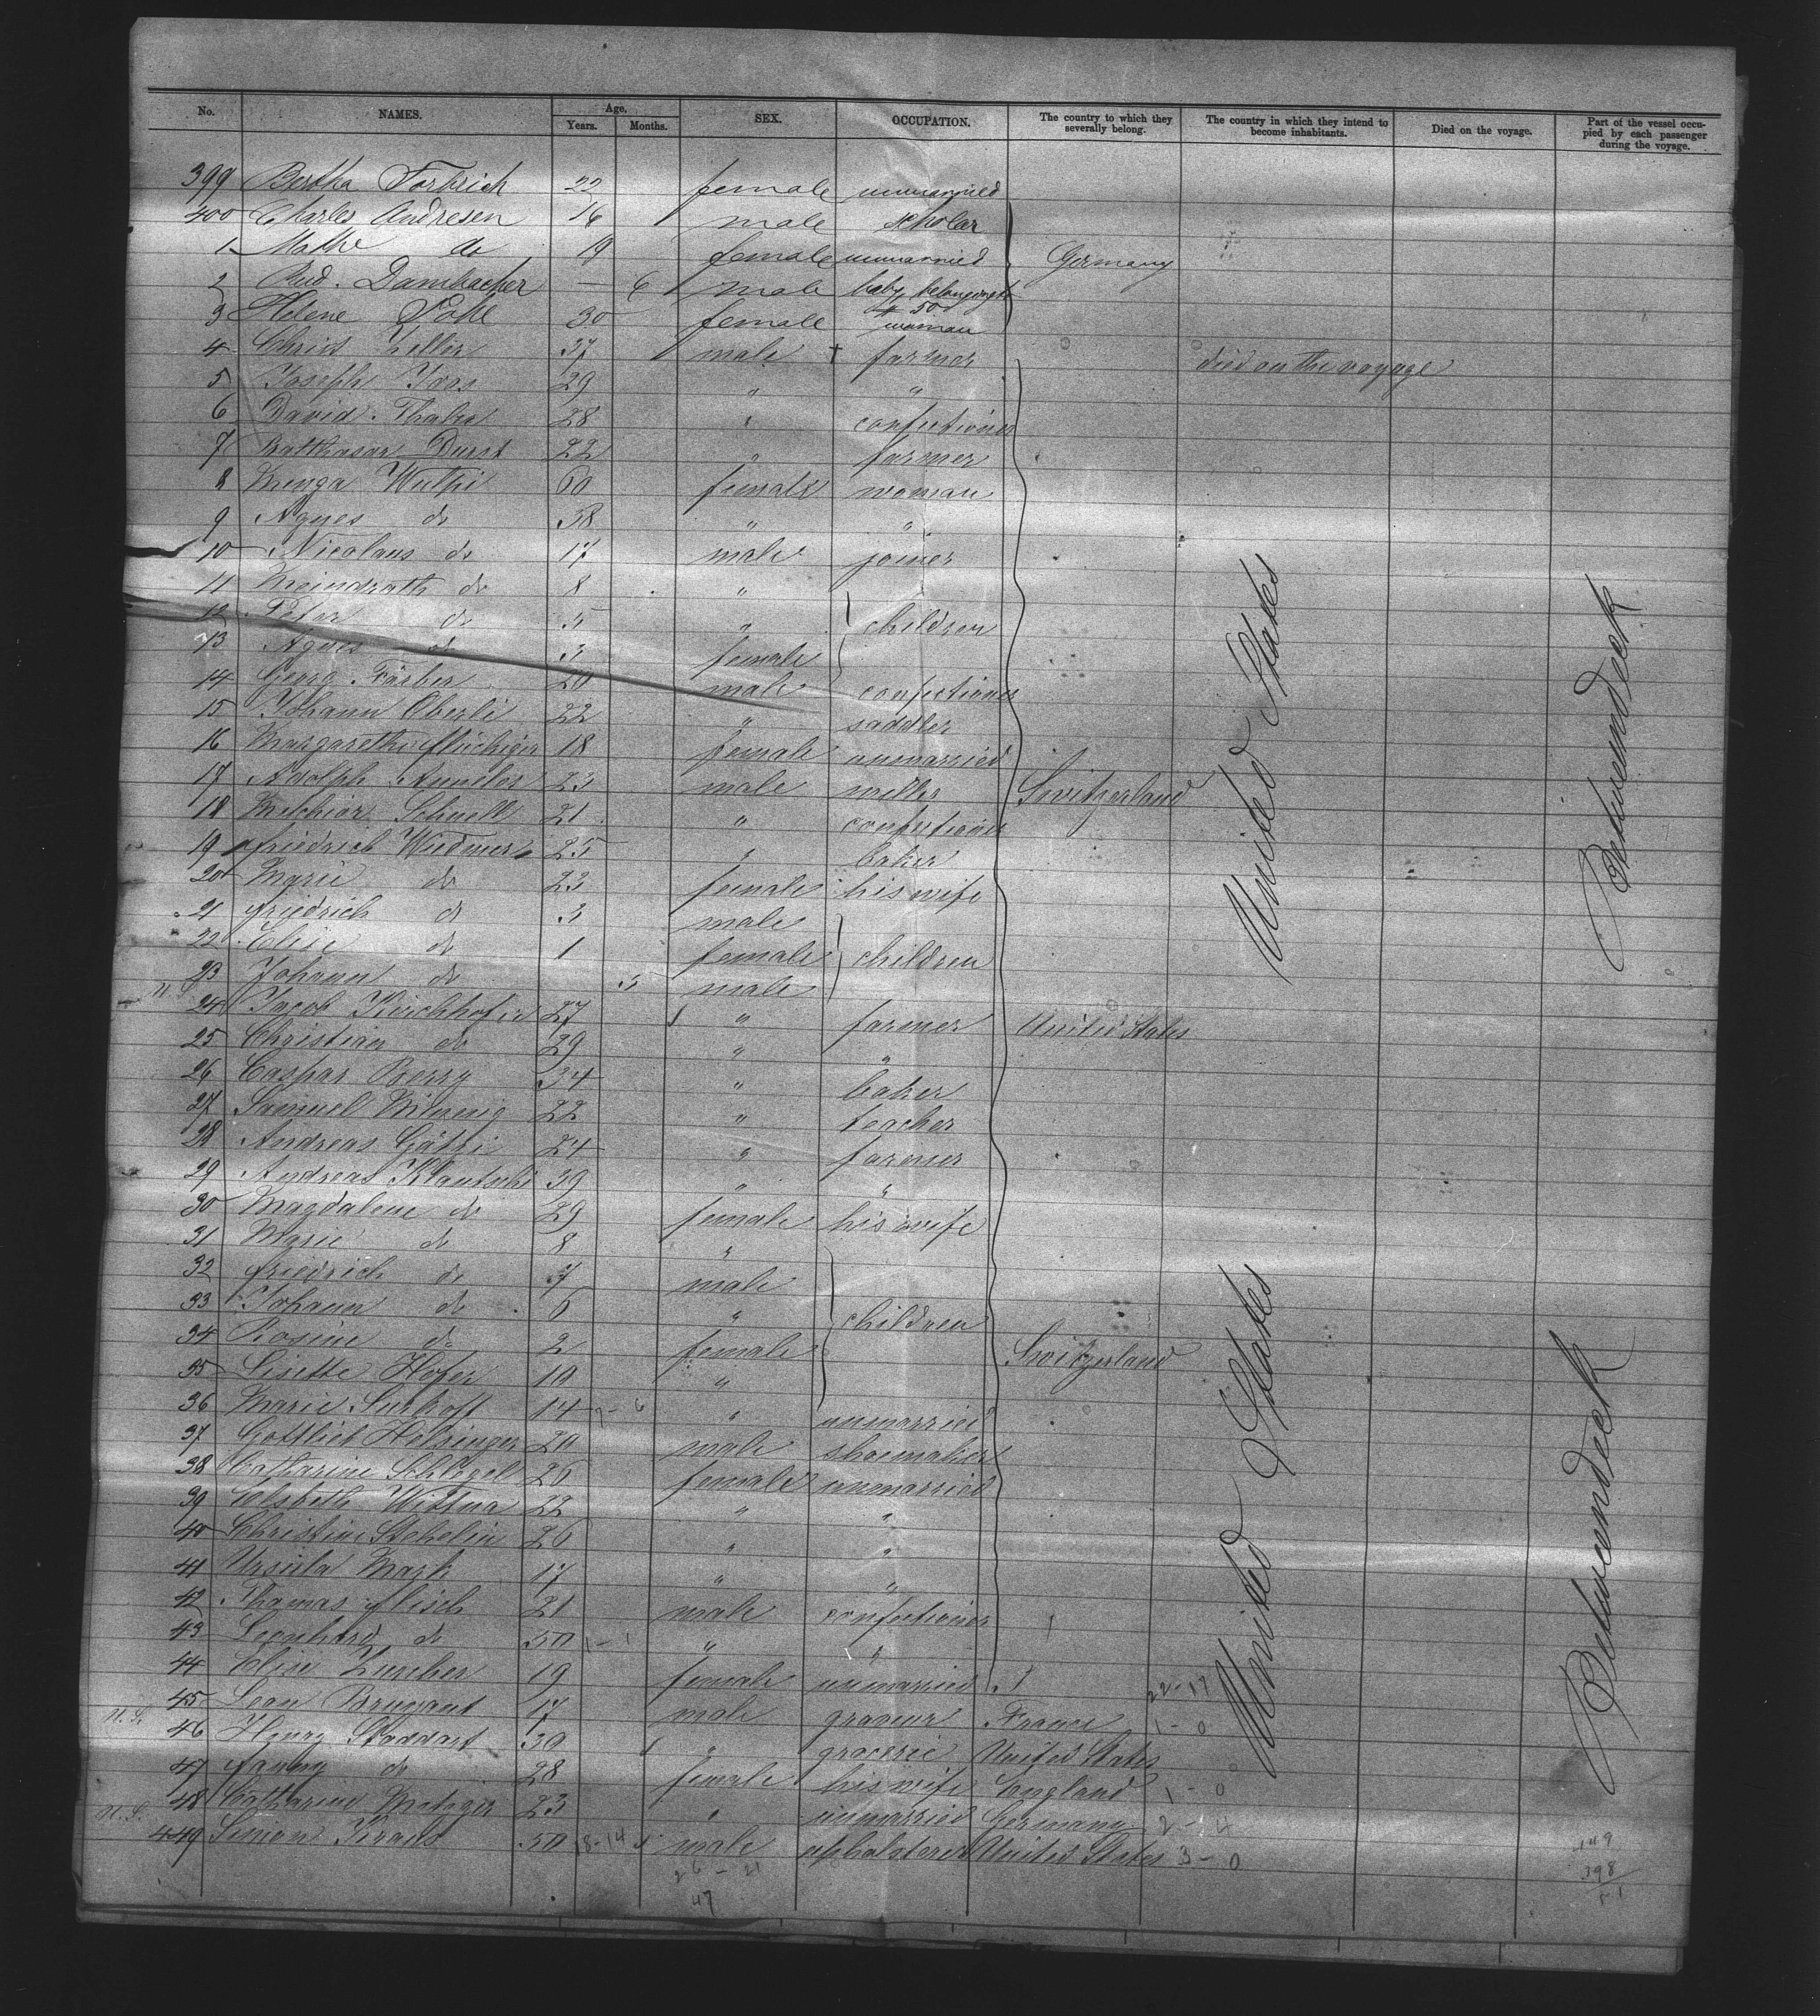 No. NAMES. Age, Years. Months. SEX. OCCUPATION. The country to which they severally belong. The country in which they intend to become inhabitants. Died on the voyage. Part of the vessel occupied by each passenger during the voyage.
399 Bertha Forbrich 22 female unmarried
400 Charles Andresen 16 male scholar
1 do 19 female unmarried Germany
2 Rud. Dambacher — 6 male baby belonging to
3 Helene Pohl 30 female woman
4 Christ Zeller 37 male † farmer died on the voyage
5 Joseph Joos 29 " "
6 David Thaler 28 " confectioner
7 Balthasar Durst 22 " farmer
8 Menga 60 female woman
9 Agnes do 38 " "
10 Nicolaus do 17 male joiner
11 do 8 "
12 Peter do 5 " children
13 Agnes do 3 female
14 Georg Färber 20 male confectioner
15 Johann Oberli 22 " saddler
16 Margaretha Flückiger 18 female unmarried
17 Adolph 23 male miller Switzerland
18 Melchior Schnell 21 " confectioner
19 Friedrich Widmer 25 " baker
20 Marie do 23 female his wife
21 Friedrich do 3 male
22 Elise do 1 female children
23 Johann do 5 male
24 Jacob Kirchhofer 27 " farmer United States
25 Christian do 29 " "
26 Caspar Berry 34 " baker
27 Samuel 22 " teacher
28 Andreas Gätzi 24 " farmer
29 Andreas Klantschi 39 " "
30 Magdalene do 29 female his wife
31 Marie do 8 "
32 Friedrich do 7 male
33 Johann do 6 " children
34 Rosine do 2 female Switzerland
35 Lisette Hofer 10 "
36 Marie 14 " unmarried
37 Gottlieb Holzinger 20 male shoemaker
38 Catharine Schlegel 26 female unmarried
39 Elsbeth 22 " "
40 Christine Stehelin 26 " "
41 Ursula Mark 17 " "
42 Thomas Flisch 21 male confectioner
43 Leonhard do 50 " "
44 Elise Zurcher 19 female unmarried 22-17
45 Leon 17 male graveur France 1-0
N.S. 46 Henry Stoddart 30 " grocerie United States
47 Fanny do 28 female his wife England 1-0
48 Catharine Metzger 23 " unmarried Germany 2-4
449 Simon 50 18-14 male upholsterer United States 3-0
26-21
47
United States
United States
Betweendeck
Betweendeck
449
398
51